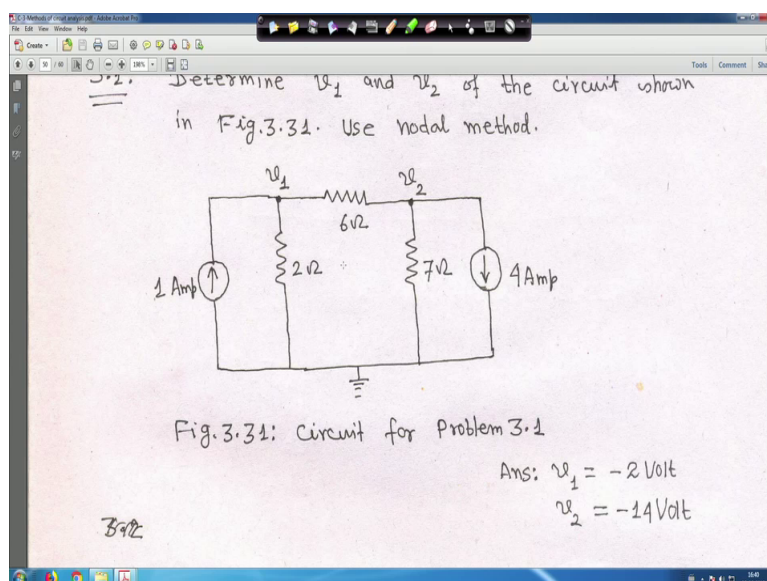 C-3-Methods of circuit analysis.pdf - Adobe Acrobat Pro
File Edit View Window Help
Create
50 / 60 198%
Tools Comment
3.1. Determine v1 and v2 of the circuit shown
in Fig.3.31. Use nodal method.
v1 v2
6Ω
1 Amp 2Ω 7Ω 4 Amp
Fig.3.31: Circuit for Problem 3.1
Ans: v1 = -2 Volt
v2 = -14 Volt
16:40